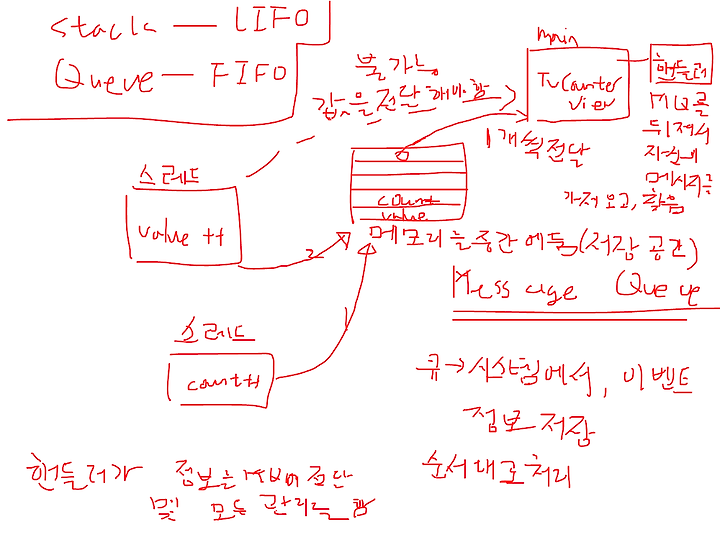 stack — LIFO
Queue — FIFO
불가능
값을 전달
main
TvCounter
view
핸들러
MQ를
뒤져서
자신의
메시지를
가져오고, 찾음
1개씩 전달
스레드
value ++
count
value
메모리를 중간에 둠(저장 공간)
Message Queue
스레드
count++
큐→시스템에서, 이벤트
정보 저장
순서대로 처리
핸들러가 정보를 MQ에 전달
및 모든 관리를 함